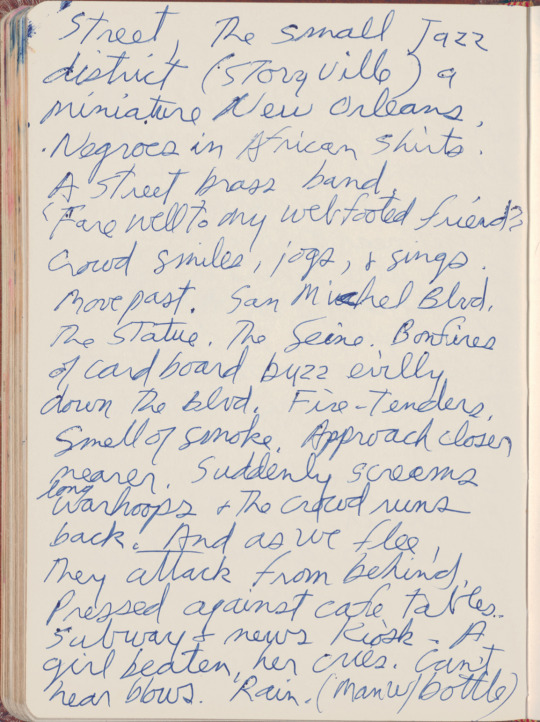 Street, The small Jazz
district (Storyville) a
miniature New Orleans.
Negroes in African shirts.
A street brass band,
"Farewell to my webfooted friends"
Crowd smiles, jogs, & sings.
Move past. San Michel Blvd.
The Statue. The Seine. Bonfires
of cardboard buzz evilly
down the Blvd. Fire-Tenders.
Smell of smoke. Approach closer
nearer. Suddenly screams
long
warhoops & The crowd runs
back. And as we flee,
They attack from behind.
Pressed against cafe tables.
Subway & news kiosk - A
girl beaten, her cries. Can't
hear blows. Rain. (Man w/ bottle)